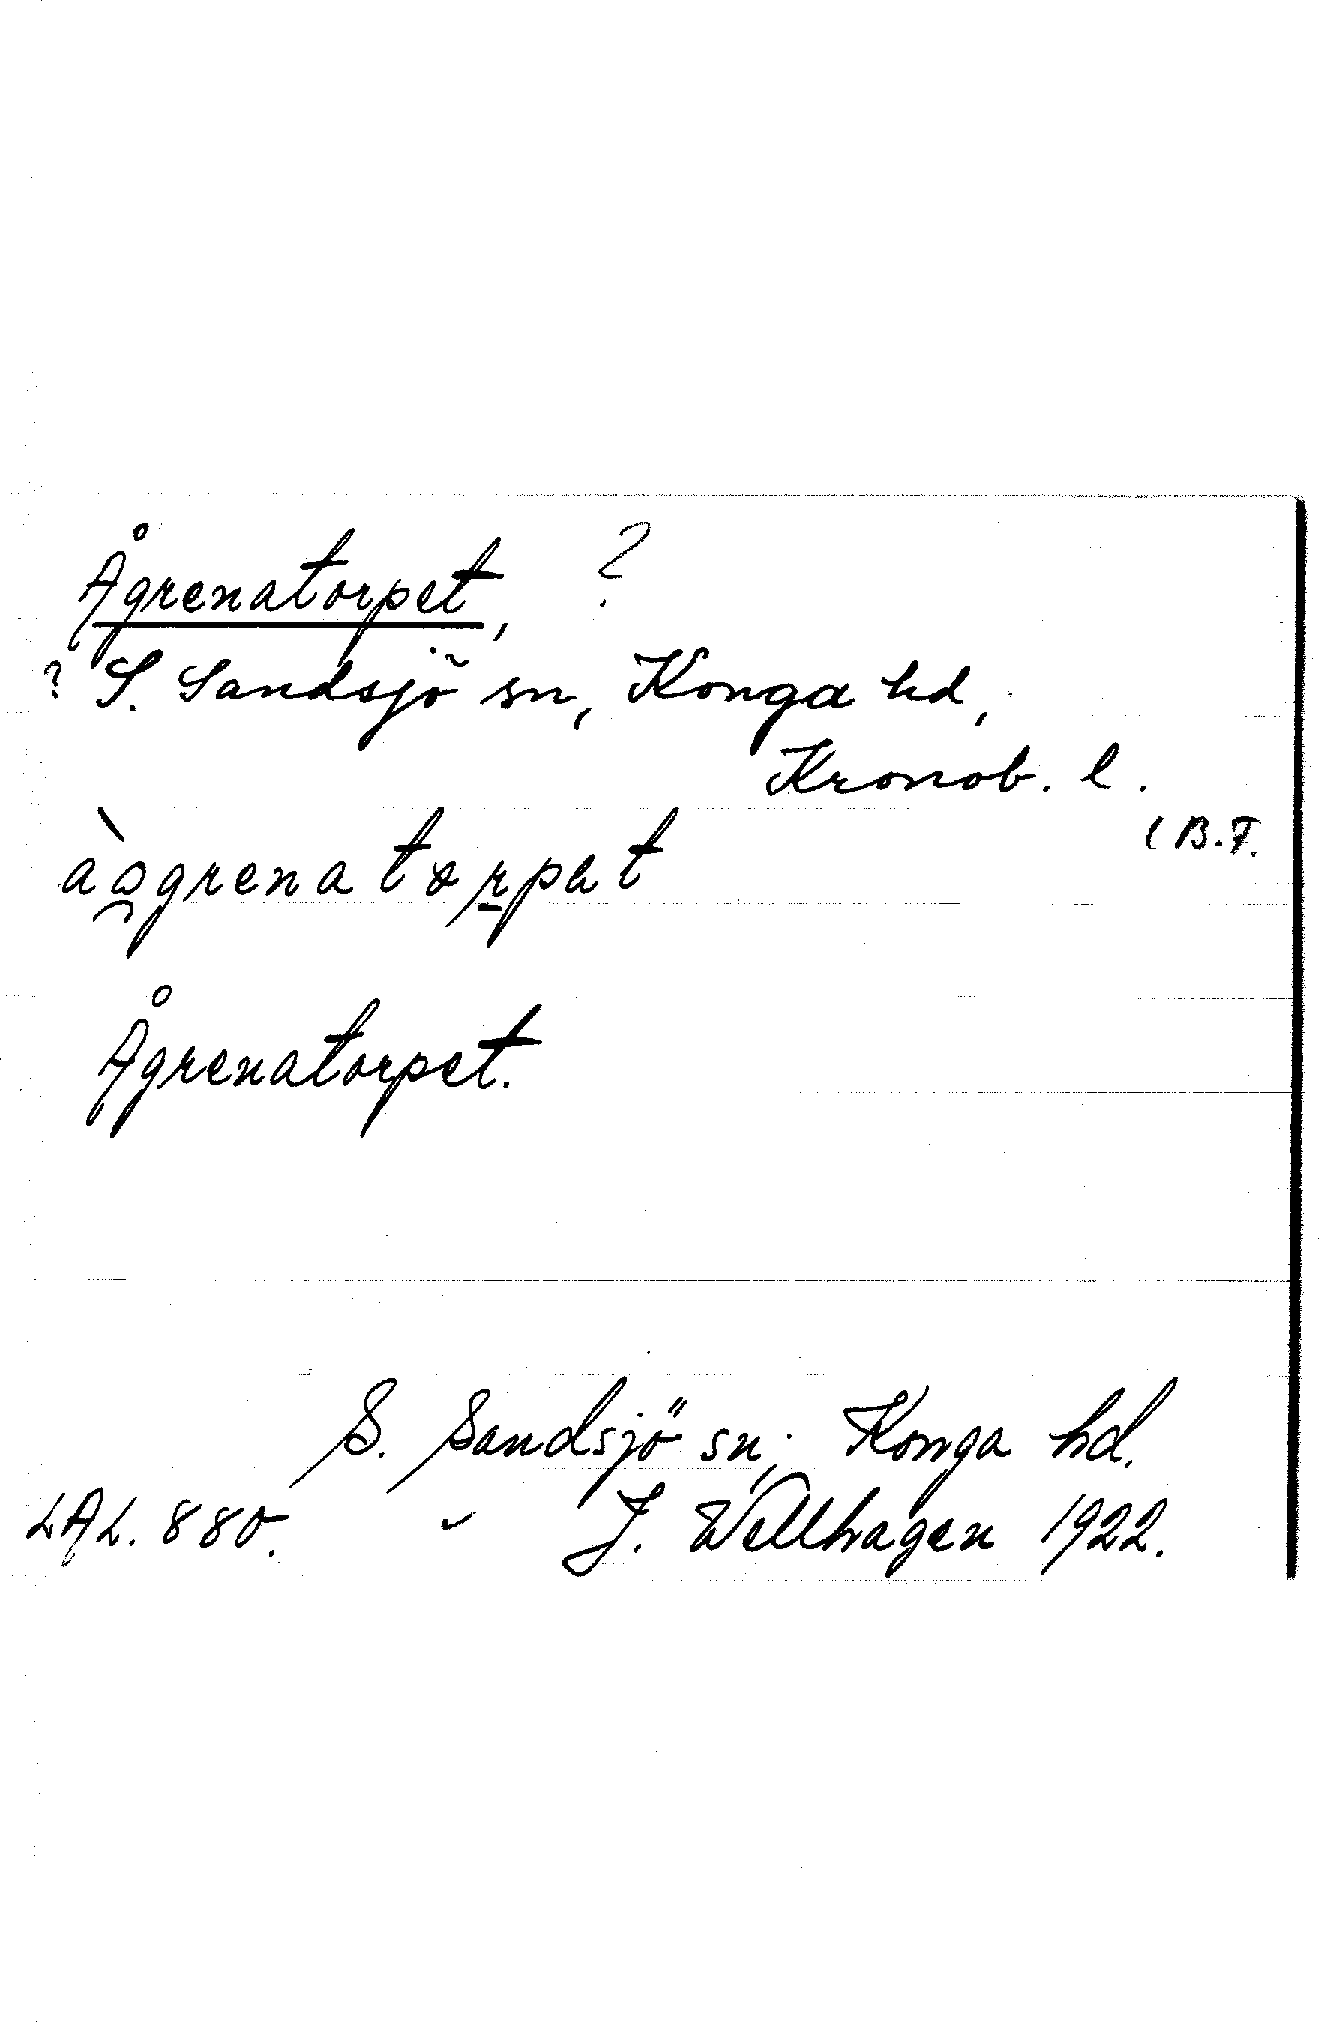 Ågrenatorpet, ?
? S. Sandsjö sn, Konga hd,
Kronob. l.
(B.F.
àogrenatorpet
Ågrenatorpet.
S. Sandsjö sn, Konga hd.
LAL. 880. J. Wellhagen 1922.